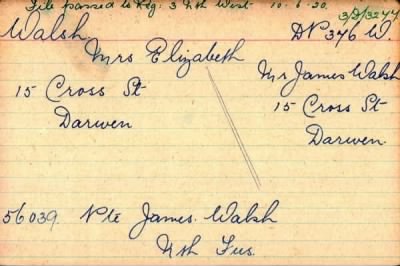 File passed to Reg: 3 Nth West. 10.6.30. 3/D/3277
Walsh. DP 376 W.
Mrs Elizabeth
15 Cross St
Darwen
Mr James Walsh
15 Cross St
Darwen.
56039. Pte James. Walsh
Nth Fus.